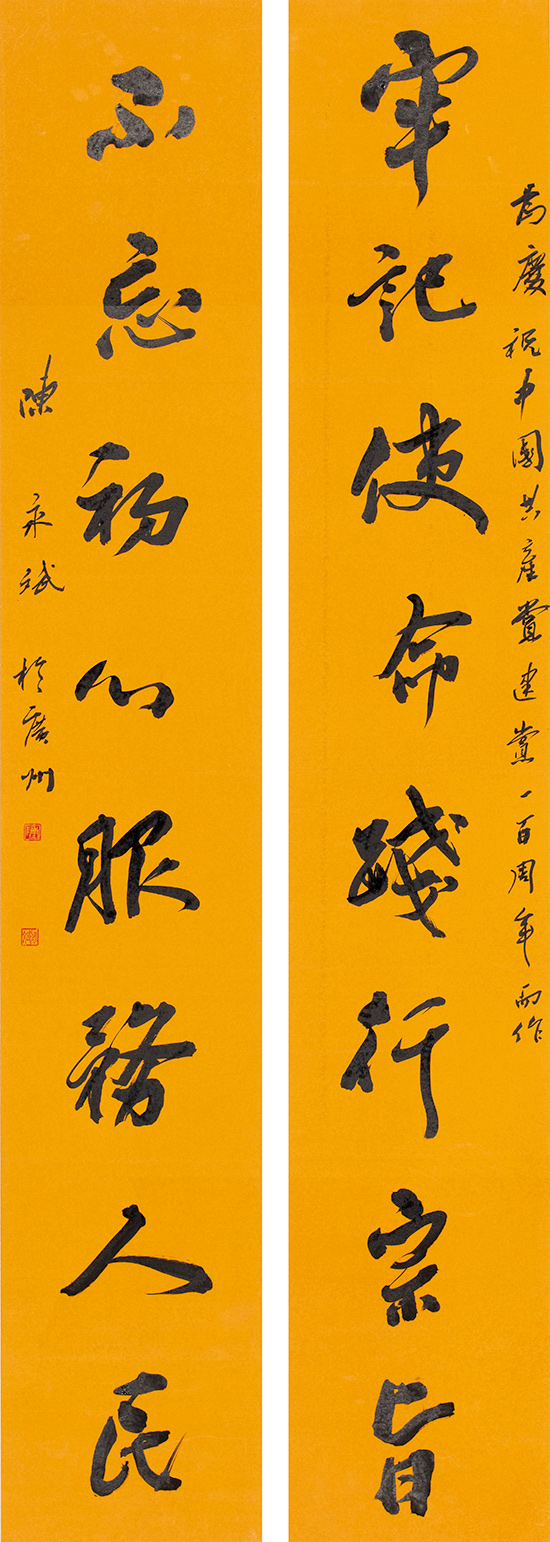 為慶祝中國共產黨建黨一百周年而作
牢記使命踐行宗旨
不忘初心服務人民
陳永斌於廣州